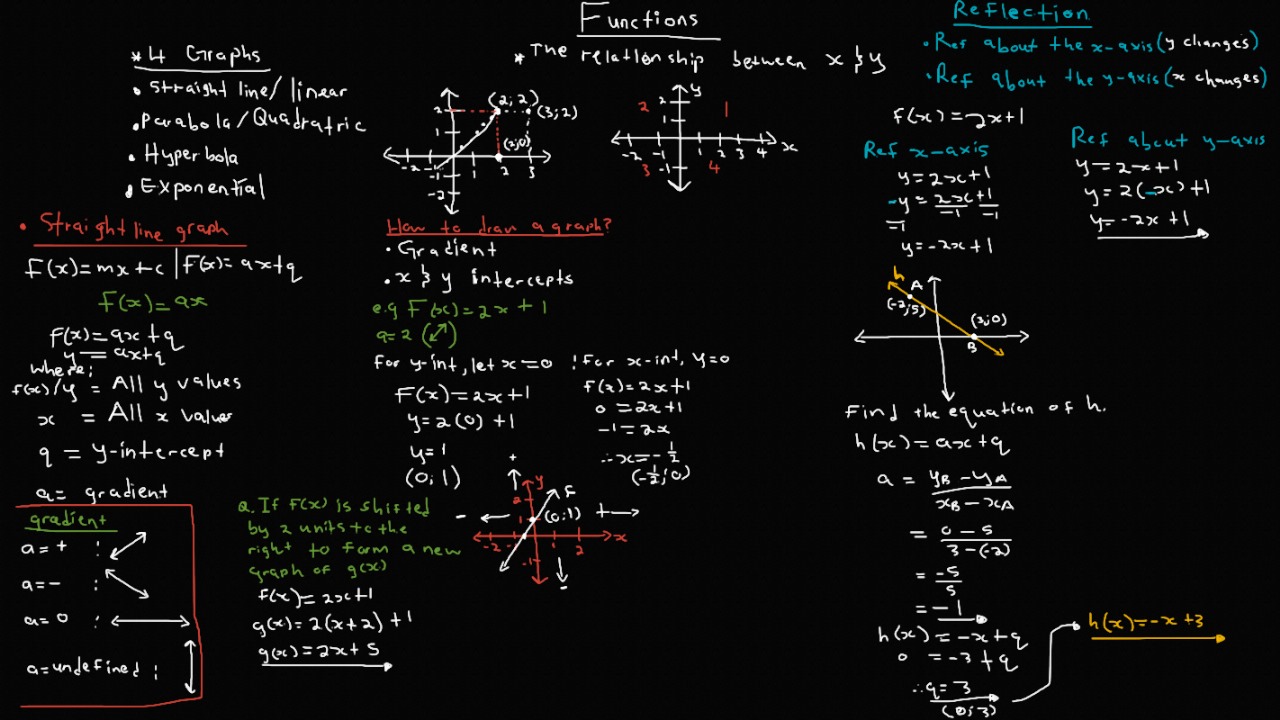 Functions
* The relationship between x & y
* 4 Graphs
• Straight line/ linear
• Parabola/Quadratric
• Hyperbola
• Exponential
2
1
-1
-2
-2 -1 1 2 3
(2;2)
(3;2)
(2;0)
y
2
1
-1
-2 -1 1 2 3 4 x
2 1
3 4
• Straight line graph
F(x)=mx+c | F(x)=ax+q
f(x)=ax
F(x)=ax+q
y=ax+q
where;
f(x)/y = All y values
x = All x values
q = y-intercept
a= gradient
gradient
a=+ :
a=- :
a=0 :
a=undefined :
How to draw a graph?
• Gradient
• x & y intercepts
e.g F(x)=2x+1
a=2 (↗)
For y-int, let x=0
F(x)=2x+1
y=2(0)+1
y=1
(0;1)
: For x-int, y=0
f(x)=2x+1
0=2x+1
-1=2x
∴x=-1/2
(-1/2;0)
Q. If f(x) is shifted
by 2 units to the
right to form a new
graph of g(x)
f(x)=2x+1
g(x)=2(x+2)+1
g(x)=2x+5
+
-
+
-
y
2
1
-1
-2 -1 1 2 x
F
(0;1)
Reflection
• Ref about the x-axis(y changes)
• Ref about the y-axis(x changes)
f(x)=2x+1
Ref x-axis
y=2x+1
-y/-1=2x/-1+1/-1
y=-2x+1
Ref about y-axis
y=2x+1
y=2(-x)+1
y=-2x+1
h
A
(-2;5)
(3;0)
B
Find the equation of h.
h(x)=ax+q
a = yB-yA/xB-xA
= 0-5/3-(-2)
= -5/5
= -1
h(x)=-x+q
0 =-3+q
∴q=3
(0;3)
h(x)=-x+3